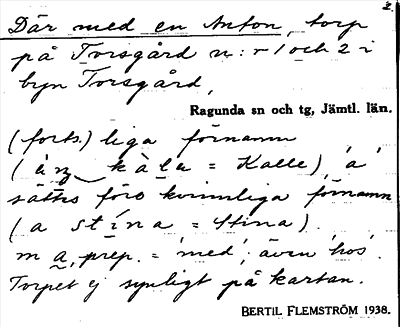 2.
Där med en Anton, torp
på Torsgård n:r 1 och 2 i
byn Torsgård,
Ragunda sn och tg, Jämtl. län.
(forts.) liga förnamn
(àn kàlu = Kalle), 'a'
sättes före kvinnliga förnamn
(a stína = Stina).
m a, prep. = 'med', även 'hos'.
Torpet ej synligt på kartan.
BERTIL FLEMSTRÖM 1938.